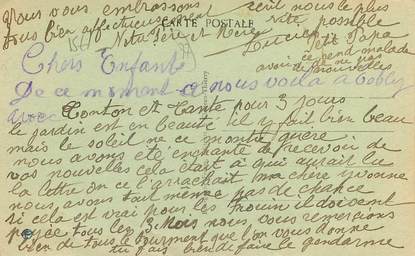 Chers Enfants
De ce moment nous voilà à
avec Tonton et Tante pour 3 jours
le jardin est en beauté il y fait bien beau
mais le soleil ne ce montre guère
nous avons été enchanté de recevoir de
vos nouvelles cela était à qui aurait lu
la lettre on ce l'arrachait ma chère yvonne
nous avons tout même pas de chance
si cela est vrai pour les il doivent
payée tous les 3 Mois nous vous remercions
bien de tous le tourment que l'on vous donne
tu fais bien de faire le gendarme
Nous vous embrassons
tous bien affectueusement
Vita Père et Mère
CARTE POSTALE
écrit nous le plus
vite possible
Petit Papa
malade